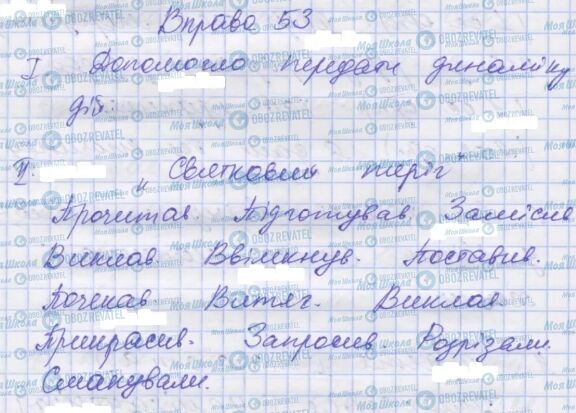 Вправа 53
I Допомогло передати динаміку
дій.
II. „Святковий пиріг"
Прочитав. Підготував. Замісив.
Виклав. Ввімкнув. Поставив.
Почекав. Витяг. Виклав.
Прикрасив. Запросив. Розрізали.
Смакували.